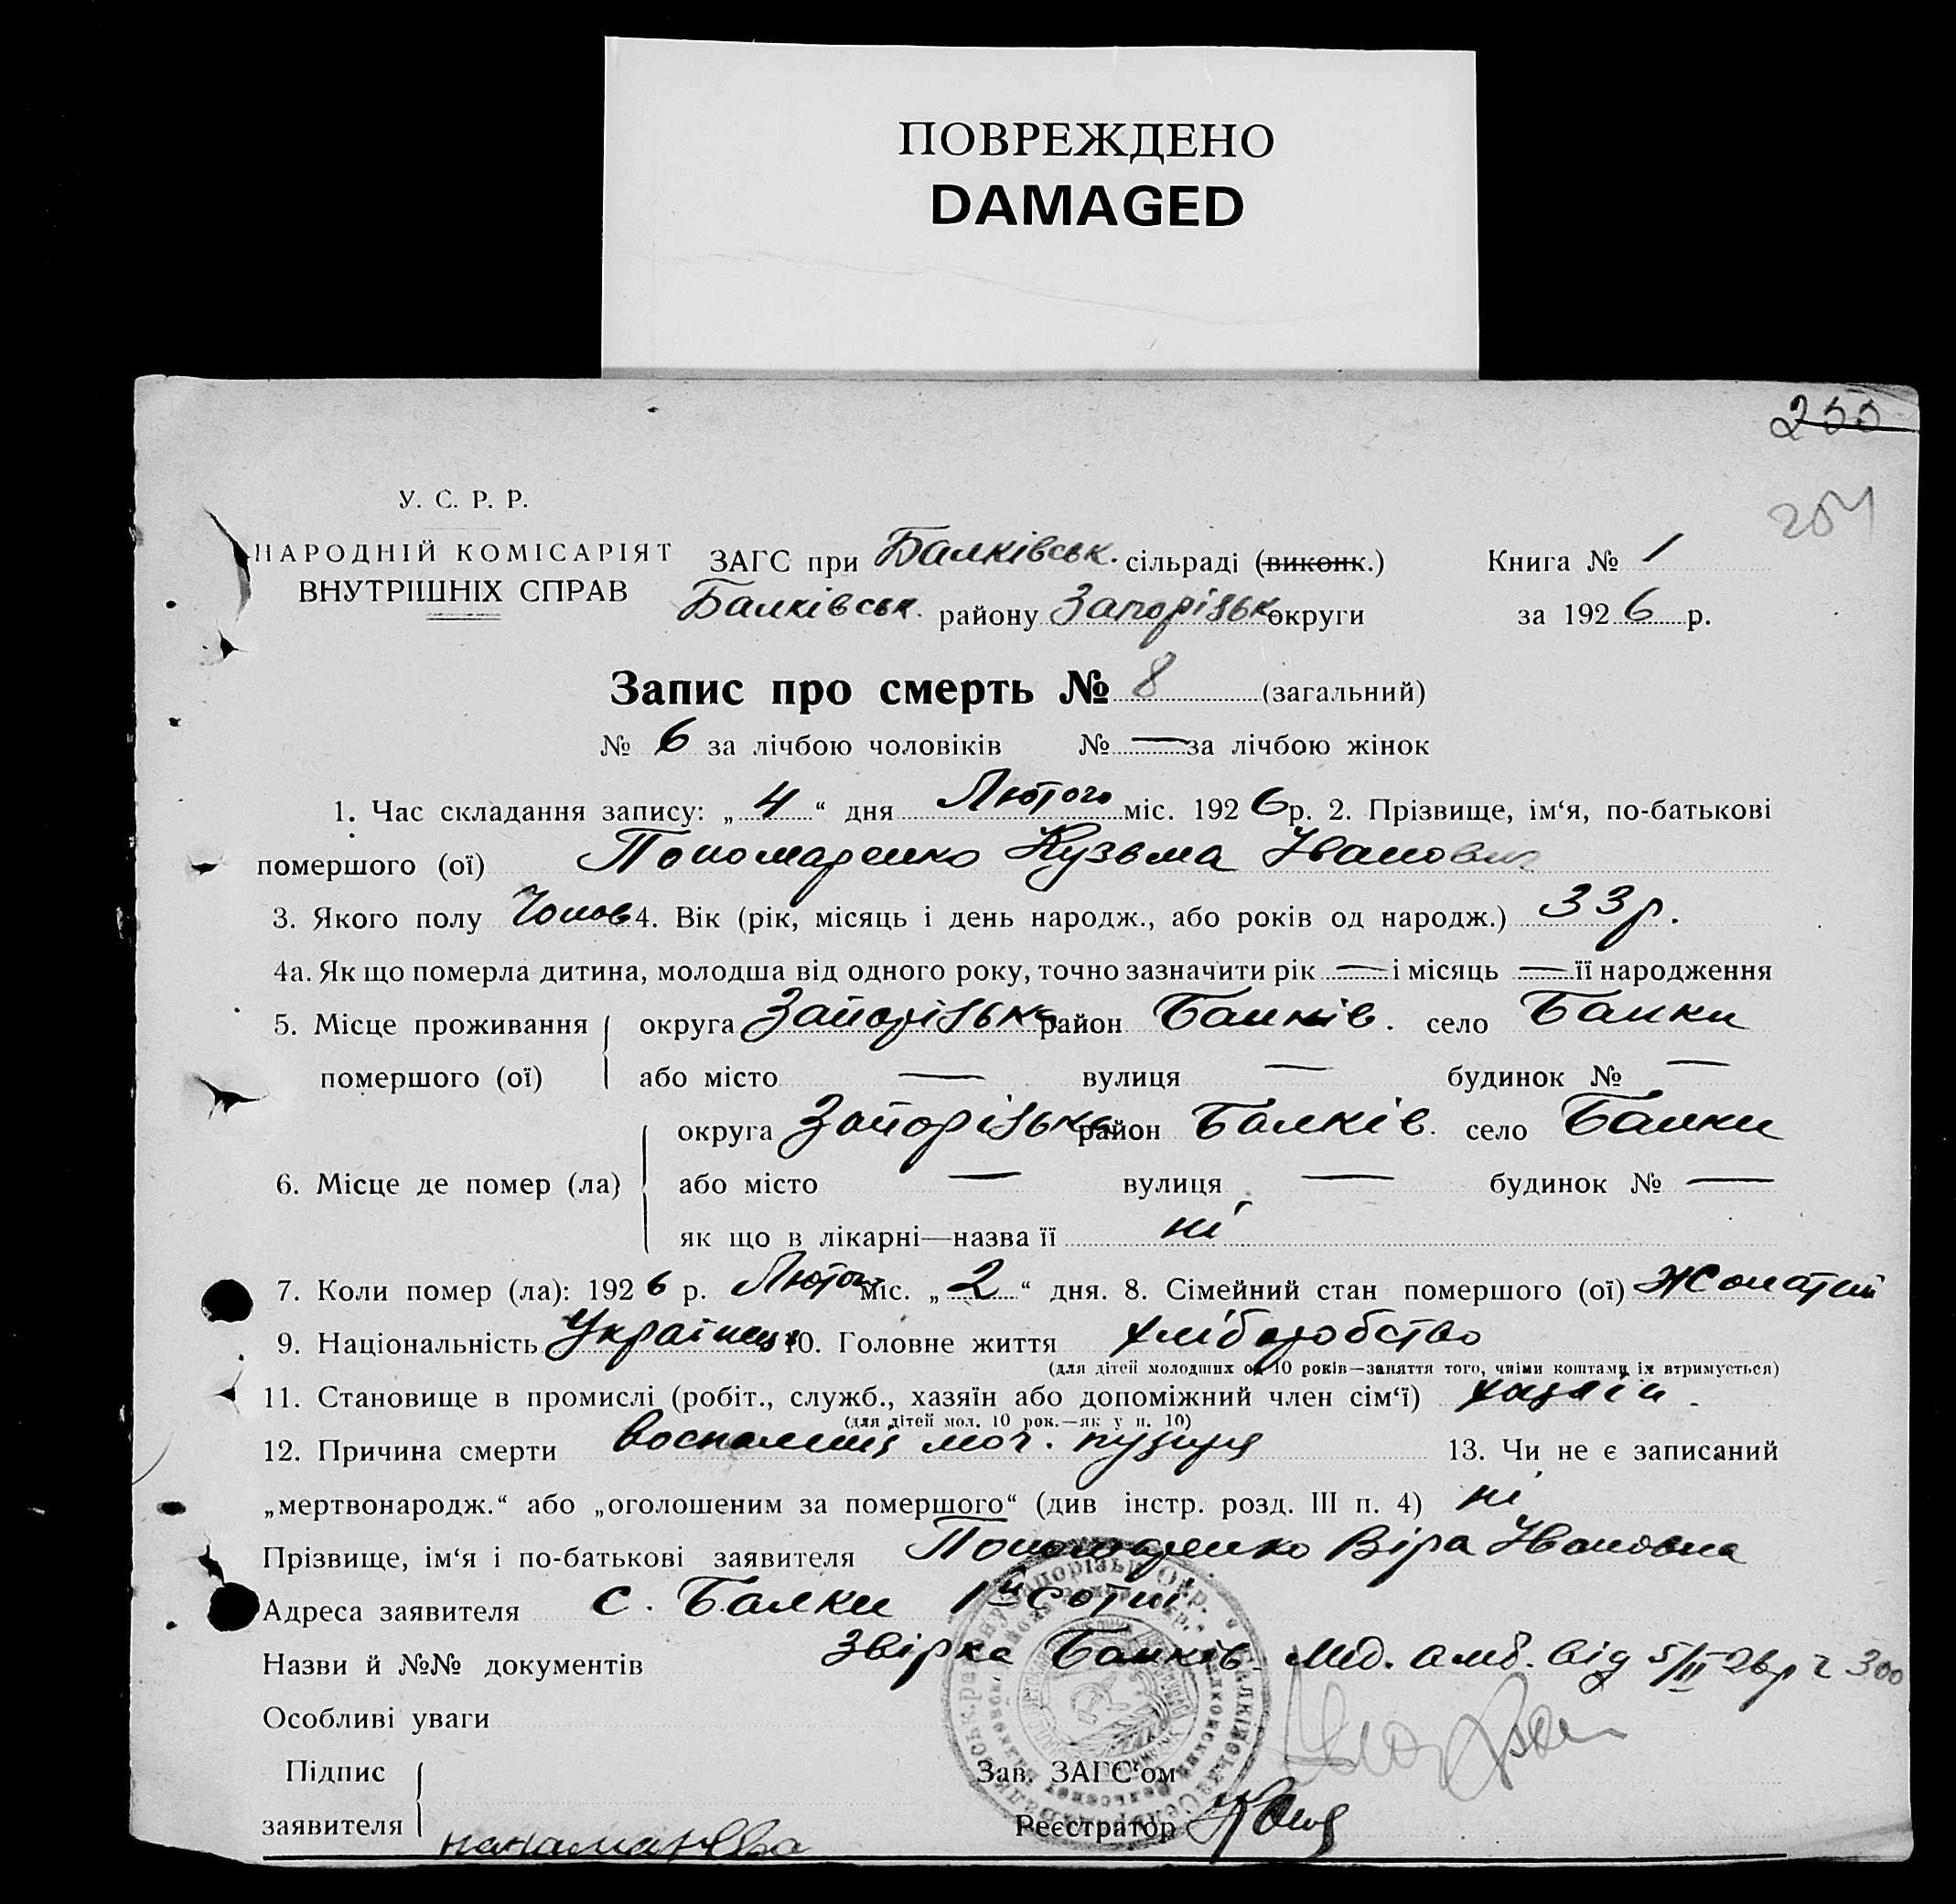 ПОВРЕЖДЕНО
DAMAGED
255
254
У. С. Р. Р.
НАРОДНІЙ КОМІСАРІЯТ
ВНУТРІШНІХ СПРАВ
ЗАГС при Балківськ. сільраді (виконк.) Книга № 1
Балківськ. району Запорізьк округи за 1926 р.
Запис про смерть № 8 (загальний)
№ 6 за лічбою чоловіків № — за лічбою жінок
1. Час складання запису: „ 4 “ дня Лютого міс. 1926 р. 2. Прізвище, ім‘я, по-батькові
помершого (ої) Пономаренко Кузьма Іванович
3. Якого полу Чолов 4. Вік (рік, місяць і день народж., або років од народж.) 33 р.
4а. Як що померла дитина, молодша від одного року, точно зазначити рік — і місяць — її народження
5. Місце проживання округа Запорізька район Балків. село Балки
помершого (ої) або місто — вулиця — будинок № —
округа Запорізька район Балків. село Балки
6. Місце де помер (ла) або місто — вулиця — будинок № —
як що в лікарні—назва її ні
7. Коли помер (ла): 1926 р. Лютого міс. „ 2 “ дня. 8. Сімейний стан помершого (ої) Жонатий
9. Національність Українець 10. Головне життя хліборобство
(для дітей молодших од 10 років—заняття того, чиїми коштами їх втримується)
11. Становище в промислі (робіт., служб., хазяїн або допоміжний член сім‘ї) хазяїн.
(для дітей мол. 10 рок.—як у п. 10)
12. Причина смерти воспаление моч. пузиря 13. Чи не є записаний
„мертвонародж.“ або „оголошеним за помершого“ (див інстр. розд. III п. 4) ні
Прізвище, ім‘я і по-батькові заявителя Пономаренко Віра Івановна
Адреса заявителя с. Балки 1й сотні
Назви й №№ документів Звірка Балків. Мед. амб. від 5/II 26 р ч 300
Особливі уваги
Підпис
заявителя
Зав. ЗАГС‘ом
Реєстратор